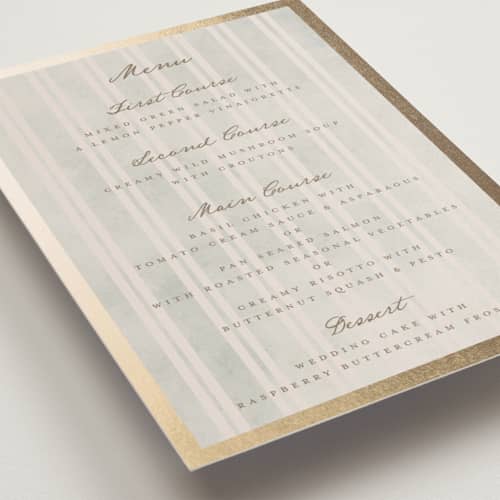 Menu
First Course
MIXED GREEN SALAD WITH
A LEMON PEPPER VINAIGRETTE
Second Course
CREAMY WILD MUSHROOM SOUP
WITH CROUTONS
Main Course
BASIL CHICKEN WITH
TOMATO CREAM SAUCE & ASPARAGUS
OR
PAN SEARED SALMON
WITH ROASTED SEASONAL VEGETABLES
OR
CREAMY RISOTTO WITH
BUTTERNUT SQUASH & PESTO
Dessert
WEDDING CAKE WITH
RASPBERRY BUTTERCREAM FROS